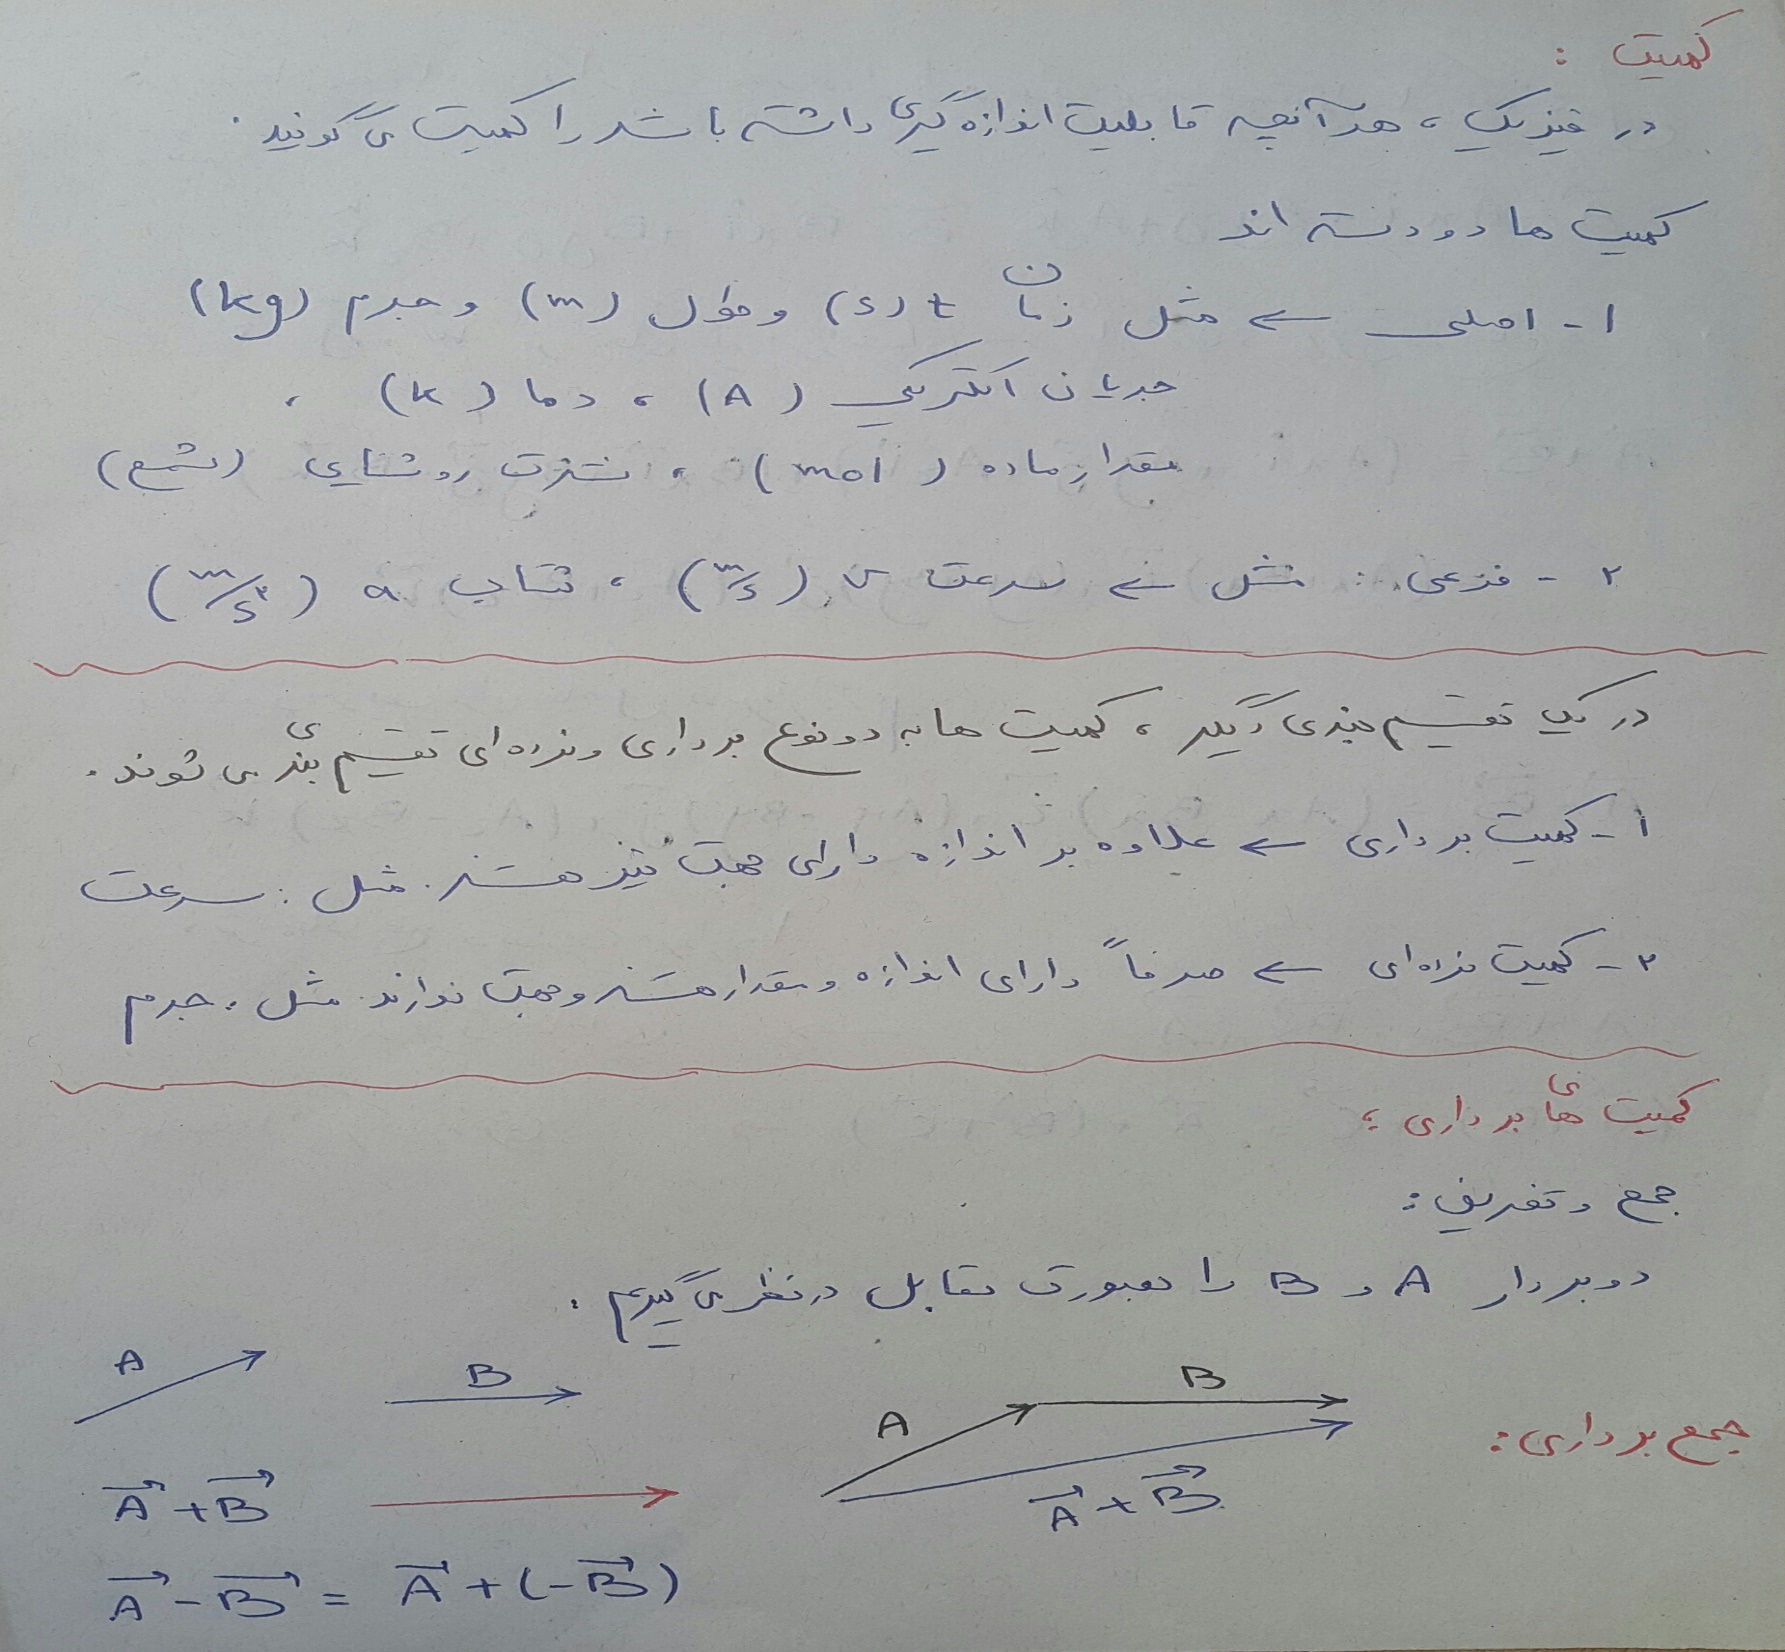 کمیت :
در فیزیک ، هر آنچه قابلیت اندازه گیری داشته باشد را کمیت می گویند .
کمیت ها دو دسته اند
۱ - اصلی ← مثل زمان t (s) و طول (m) و جرم (kg)
جریان الکتریکی (A) ، دما (k) ،
مقدار ماده (mol) ، شدت روشنایی (شمع)
۲ - فرعی : مثل ← سرعت v (m/s) ، شتاب a (m/s²)
در یک تقسیم بندی دیگر ، کمیت ها به دو نوع برداری و نرده ای تقسیم بندی می شوند .
۱ - کمیت برداری ← علاوه بر اندازه دارای جهت نیز هستند . مثل : سرعت
۲ - کمیت نرده ای ← صرفاً دارای اندازه و مقدار هستند و جهت ندارند . مثل : جرم
کمیت های برداری :
جمع و تفریق :
دو بردار A و B را بصورت مقابل در نظر می گیریم :
A B
جمع برداری : A B A⃗ + B⃗
A⃗ + B⃗
A⃗ - B⃗ = A⃗ + (-B⃗)